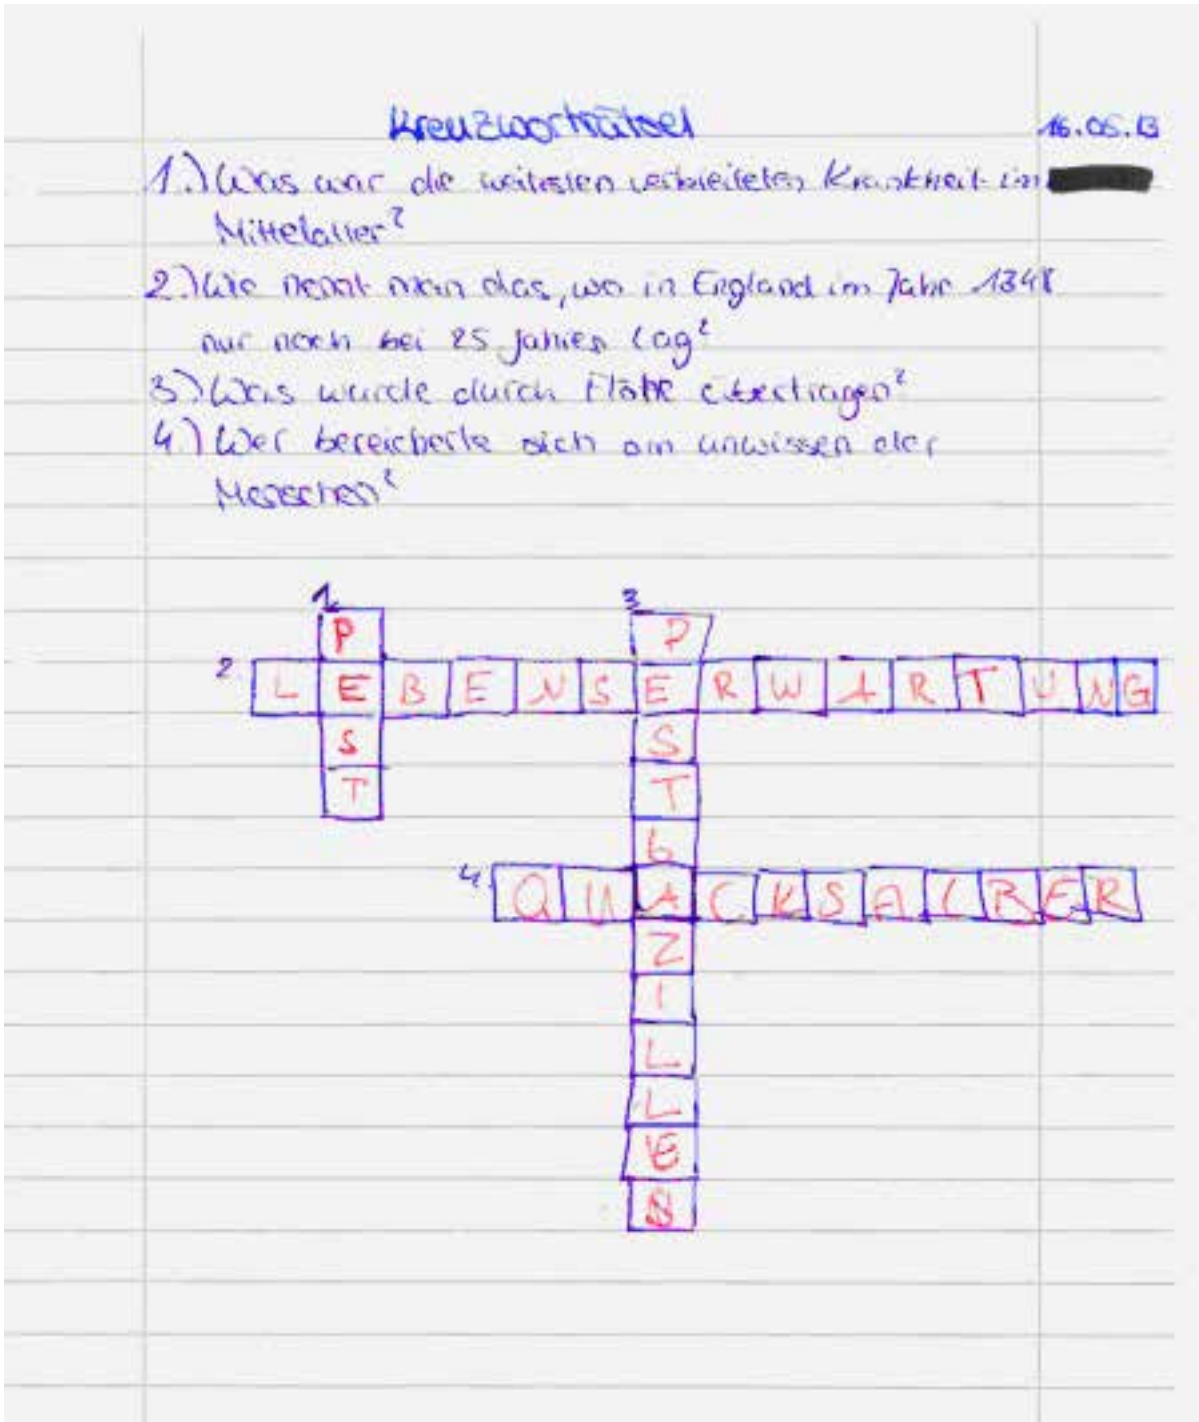 Kreuzworträtsel
16.05.13
1.) Was war die weitesten verbreiteten Krankheit im
Mittelalter?
2.) Wie nennt man das, wo in England im Jahr 1348
nur noch bei 25 Jahren lag?
3) Was wurde durch Flöhe übertragen?
4) Wer bereicherte sich am unwissen der
Menschen?
1. 3
P P
2. L E B E N S E R W A R T U N G
S S
T T
b
4. Q U A C K S A L B E R
Z
I
L
L
E
N